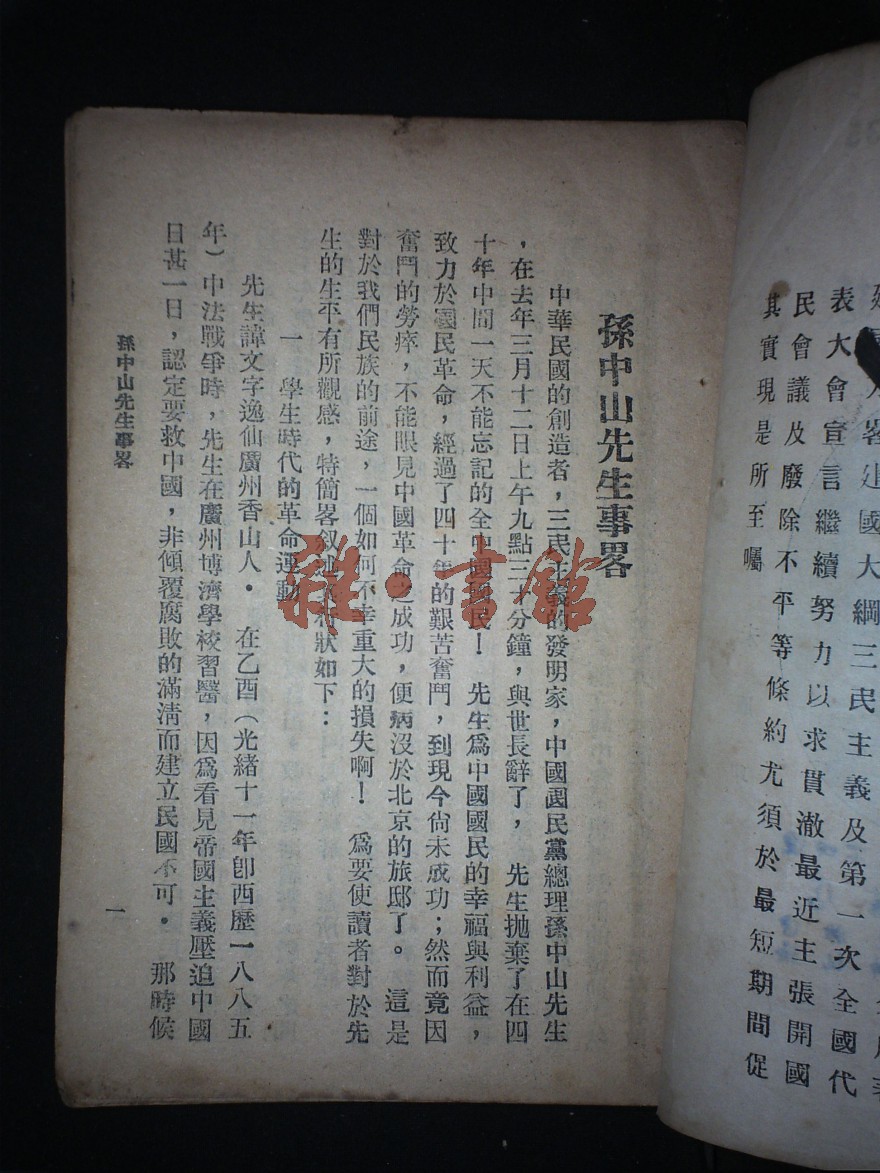 表大會宣言繼續努力以求貫澈最近主張開國
民會議及廢除不平等條約尤須於最短期間促
其實現是所至囑
孫中山先生事畧
中華民國的創造者，三民主義的發明家，中國國民黨總理孫中山先生
，在去年三月十二日上午九點三十分鐘，與世長辭了， 先生拋棄了在四
十年中間一天不能忘記的全中國國民！ 先生爲中國國民的幸福與利益，
致力於國民革命，經過了四十年的艱苦奮鬥，到現今尙未成功；然而竟因
奮鬥的勞瘁，不能眼見中國革命之成功，便病沒於北京的旅邸了。 這是
對於我們民族的前途，一個如何不幸重大的損失啊！ 爲要使讀者對於先
生的生平有所觀感，特簡畧叙述 狀如下：
一 學生時代的革命運動
先生諱文字逸仙廣州香山人． 在乙酉（光緒十一年卽西歷一八八五
年）中法戰爭時，先生在廣州博濟學校習醫，因爲看見帝國主義壓迫中國
日甚一日，認定要救中國，非傾覆腐敗的滿淸而建立民國不可． 那時候
孫中山先生事畧
一
雜·書館